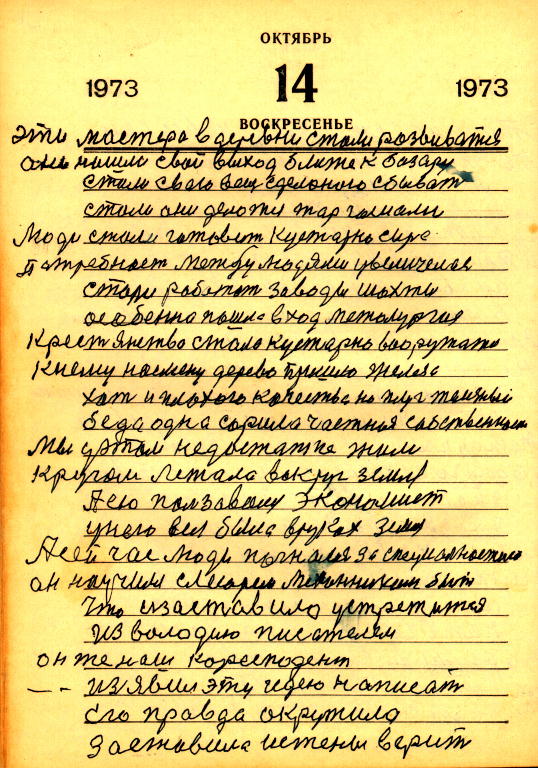 ОКТЯБРЬ
1973 14 1973
ВОСКРЕСЕНЬЕ
эти мастера в деревни стали розвиватся
они нашли свой выход ближе к базару
стали свою вещ сделоного сбыват
стали они делатся
Моди стали готовит кустарно
патребност между людями увеличелас
стали работат заводы шахти
особенна пошла вход металургия
Крестянство стало кустарно вооружатс
Кнему насмену дерево пришло железа
хат и плохого качества но плуг
беда одна сорила частная собственност
Мы уэтом недостатке жили
Кругом летала вокруг земля
Аею ползавалс экономист
унего вся была вруках земля
Асей час люди погналис за специалностями
он научился слесарем механником быт
Что изаставило устретится
из володию писателем
он же наш коресподент
-- изявил эту идею написат
его правда окружила
заставила истены верит